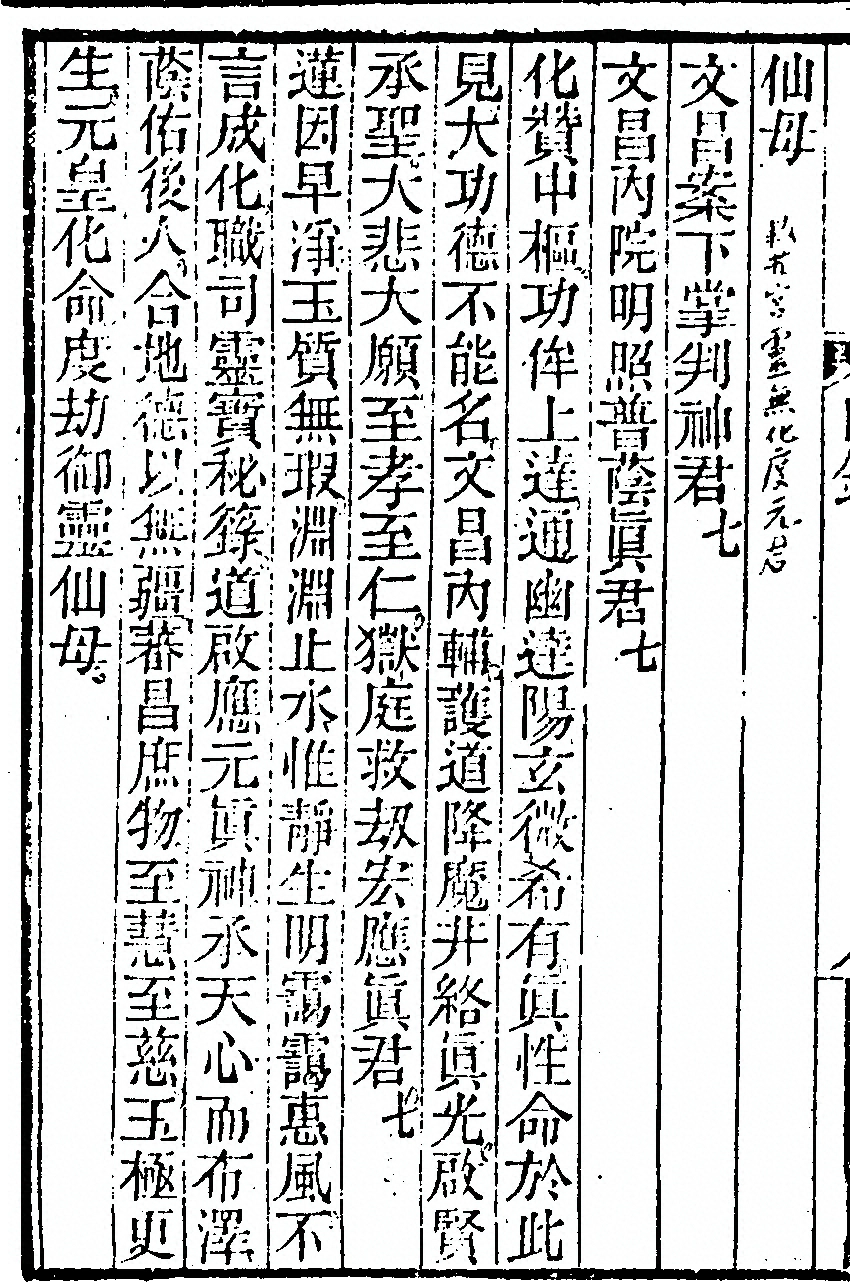 仙母 救苦宮靈無化度元君
文昌案下掌判神君七
文昌內院明照普蔭眞君七
化贊中樞功侔上達通幽達陽玄微希有眞性命於此
見大功德不能名文昌內輔護道降魔井絡眞光啟賢
承聖大悲大願至孝至仁獄庭救劫宏應眞君七
蓮因早淨玉質無瑕淵淵止水惟靜生明靄靄惠風不
言成化職司靈寶秘籙道啟應元眞神承天心而布澤
蔭佑後人合地德以無疆蕃昌庶物至慧至慈玉極更
生元皇化命度劫御靈仙母